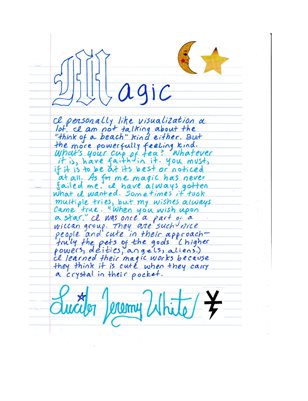 Magic
I personally like visualization a
lot. I am not talking about the
"think of a beach" kind either. But
the more powerfully feeling kind.
What's your cup of tea? Whatever
it is, have faith in it. You must,
if it is to be at its best or noticed
at all. As for me magic has never
failed me. I have always gotten
what I wanted. Sometimes it took
multiple tries, but my wishes always
came true. "When you wish upon
a star." I was once a part of a
wiccan group. They are such nice
people and cute in their approach-
truly the pets of the gods (higher
powers, deities, angels, aliens.)
I learned their magic works because
they think it is cute when they carry
a crystal in their pocket.
Lucifer Jeremy White